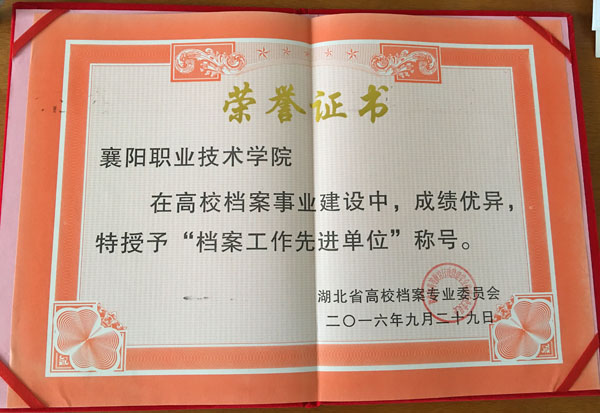 荣誉证书
襄阳职业技术学院
在高校档案事业建设中，成绩优异，
特授予“档案工作先进单位”称号。
湖北省高校档案专业委员会
二〇一六年九月二十九日